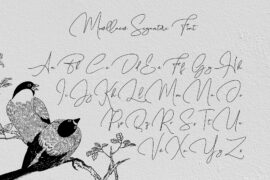 Signature Font
Aa Bb Cc Dd Ee Ff Gg Hh
Ii Jj Kk Ll Mm Nn Oo
Pp Qq Rr Ss Tt Uu
Vv Xx Yy Zz